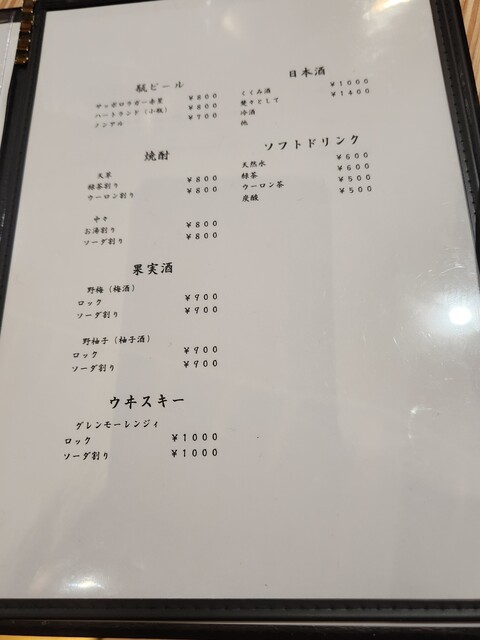 瓶ビール
サッポロラガー赤星 ¥800
ハートランド(小瓶) ¥800
ノンアル ¥700
焼酎
大草
緑茶割り ¥800
ウーロン割り ¥800
中々
お湯割り ¥800
ソーダ割り ¥800
果実酒
野梅(梅酒)
ロック ¥900
ソーダ割り ¥900
野柚子(柚子酒)
ロック ¥900
ソーダ割り ¥900
ウヰスキー
グレンモーレンジィ
ロック ¥1000
ソーダ割り ¥1000
日本酒
くくみ酒 ¥1000
楚々として ¥1400
冷酒
他
ソフトドリンク
天然水 ¥600
緑茶 ¥600
ウーロン茶 ¥500
炭酸 ¥500